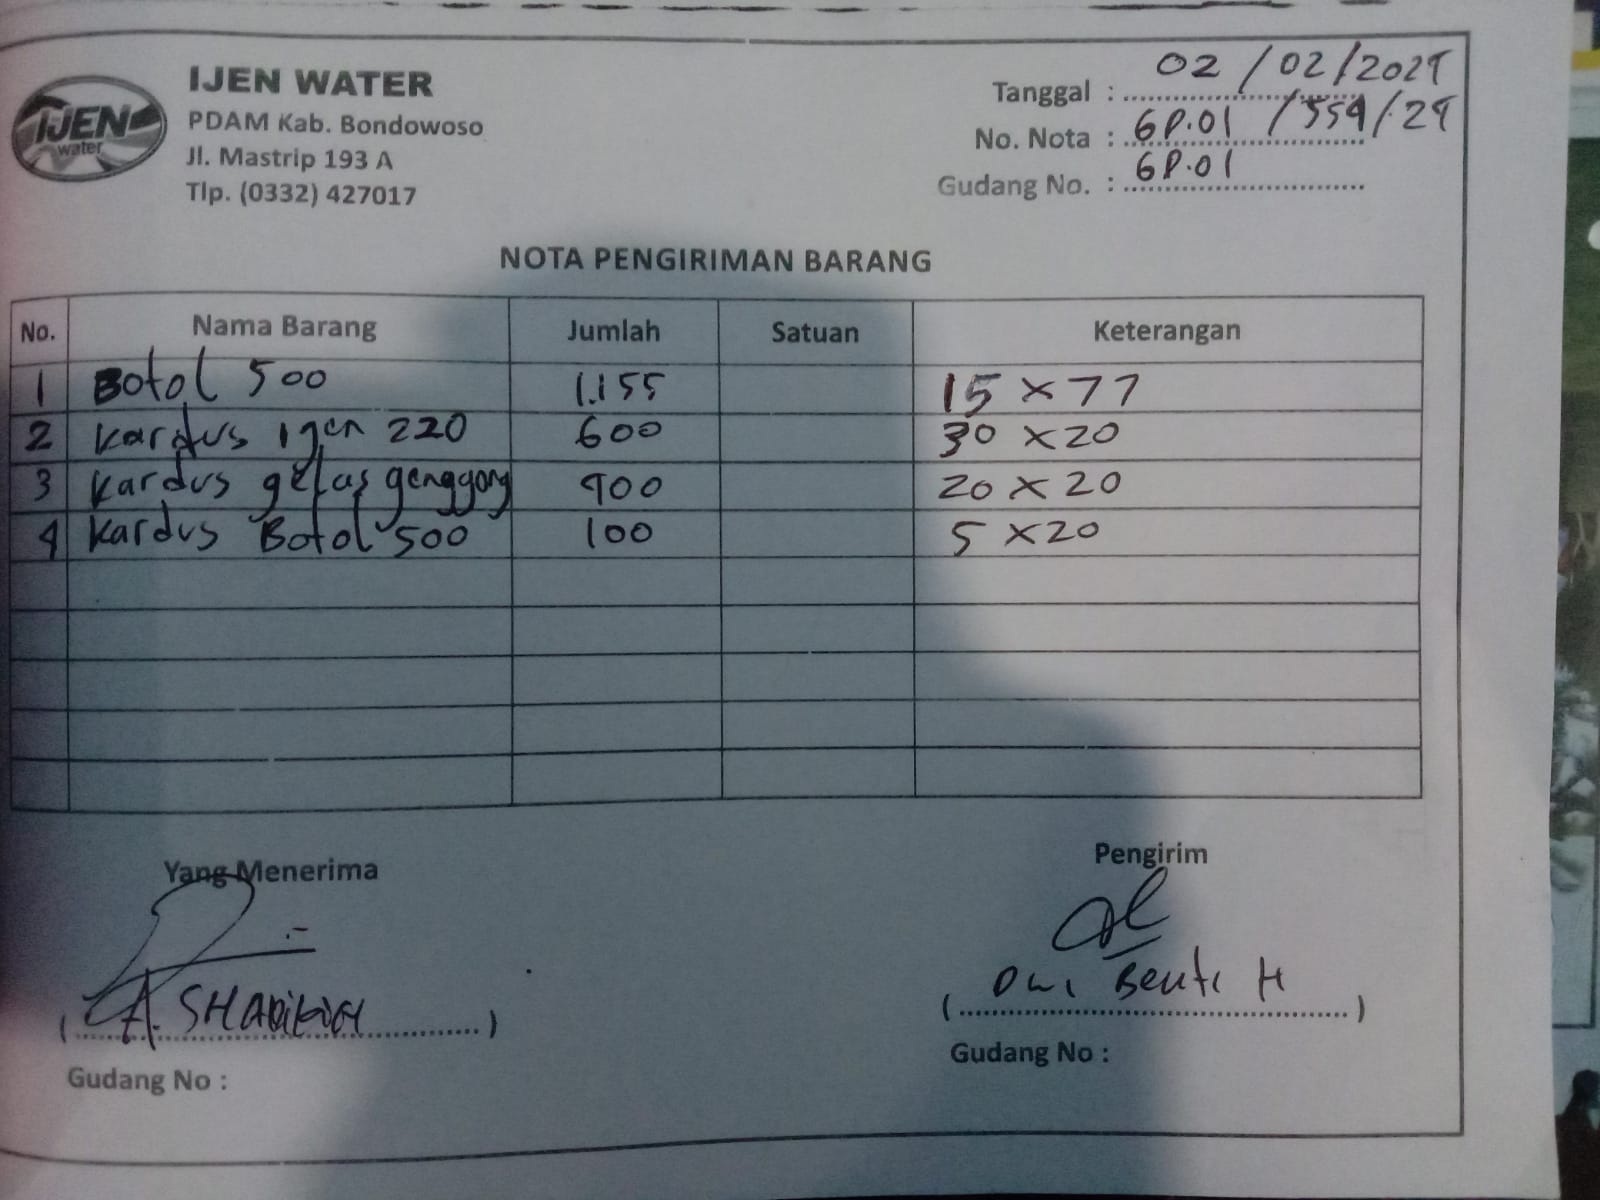 IJEN WATER
PDAM Kab. Bondowoso
Jl. Mastrip 193 A
Tlp. (0332) 427017
IJEN
water
Tanggal : 02/02/2024
No. Nota : GP.01 /554/24
Gudang No. : GP.01
NOTA PENGIRIMAN BARANG
No. Nama Barang Jumlah Satuan Keterangan
1 Botol 500 1.155 15 x 77
2 Kardus Ijen 220 600 30 x 20
3 Kardus gelas genggong 400 20 x 20
4 Kardus Botol 500 100 5 x 20
Yang Menerima Pengirim
( A. ) ( Dwi H )
Gudang No : Gudang No :